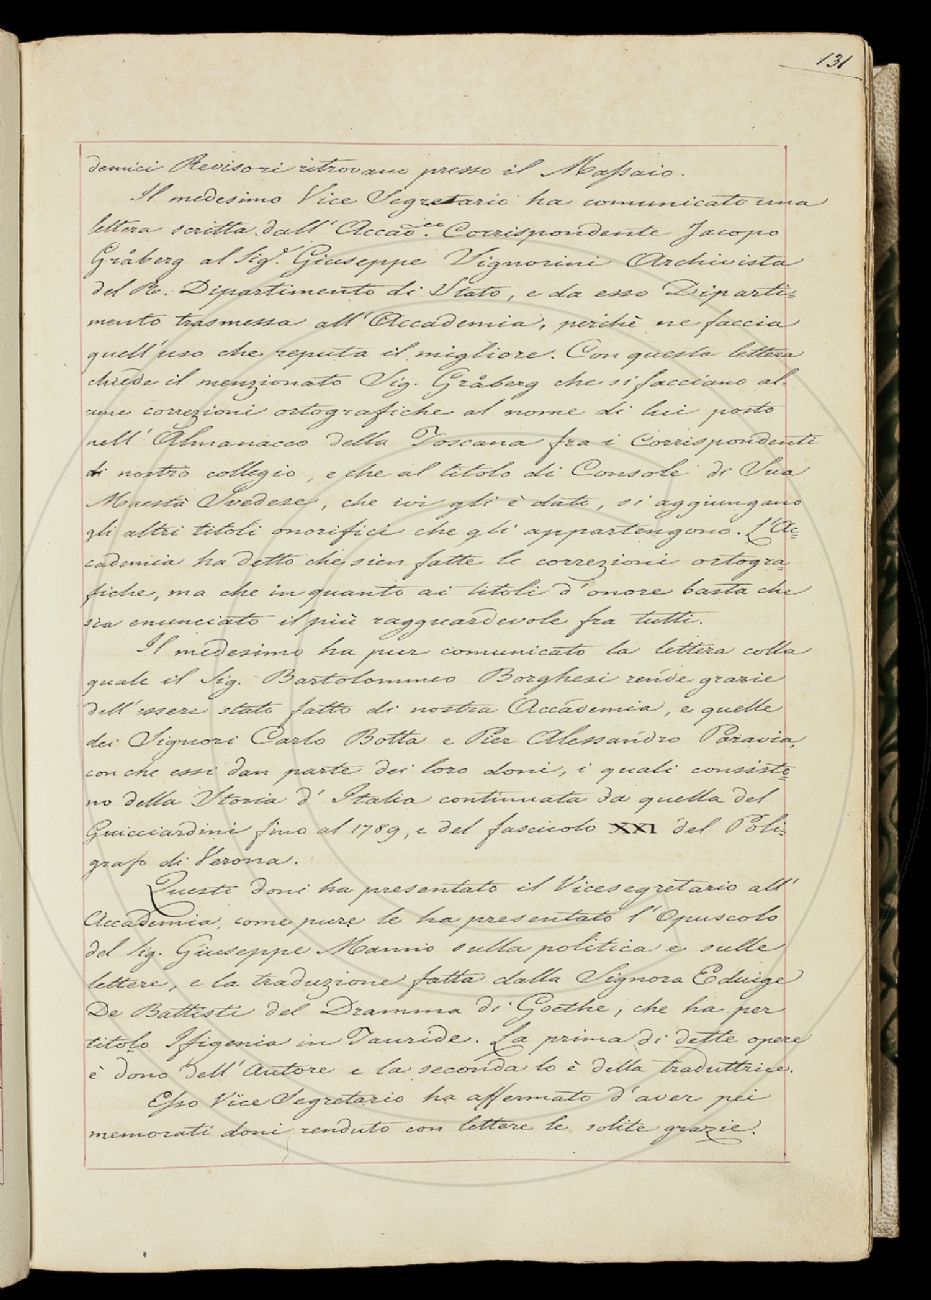 131
demici Revisori ritrovano presso il Massaio.
Il medesimo Vice Segretario ha comunicato una
lettera scritta dall'Accad.co Corrispondente Jacopo
Gråberg al Sig.r Giuseppe Vignorini Archivista
del R. Dipartimento di Stato, e da esso Diparti-
mento trasmessa all'Accademia, perchè ne faccia
quell'uso che reputa il migliore. Con questa lettera
chiede il menzionato Sig. Gråberg che si facciano al-
cune correzioni ortografiche al nome di lui posto
nell'Almanacco della Toscana fra i Corrispondenti
di nostro collegio, e che al titolo di Console di Sua
Maestà Svedese, che ivi gli è dato, si aggiungano
gli altri titoli onorifici che gli appartengono. L'Ac-
cademia ha detto che sien fatte le correzioni ortogra-
fiche, ma che in quanto ai titoli d'onore basta che
sia enunciato il più ragguardevole fra tutti.
Il medesimo ha pur comunicato la lettera colla
quale il Sig. Bartolommeo Borghesi rende grazie
dell'essere stato fatto di nostra Accademia, e quelle
dei Signori Carlo Botta e Pier Alessandro Paravia,
con che essi dan parte dei loro doni, i quali consisto-
no della Storia d'Italia continuata da quella del
Guicciardini fino al 1789, e del fascicolo XXI del Poli-
grafo di Verona.
Questi doni ha presentato il Vicesegretario all'
Accademia, come pure le ha presentato l'Opuscolo
del Sig. Giuseppe Manno sulla politica e sulle
lettere, e la traduzione fatta dalla Signora Eduige
De Battisti del Dramma di Goethe, che ha per
titolo Ifigenia in Tauride. La prima di dette opere
è dono dell'Autore e la seconda lo è della traduttrice.
Esso Vice Segretario ha affermato d'aver pei
memorati doni renduto con lettere le solite grazie.